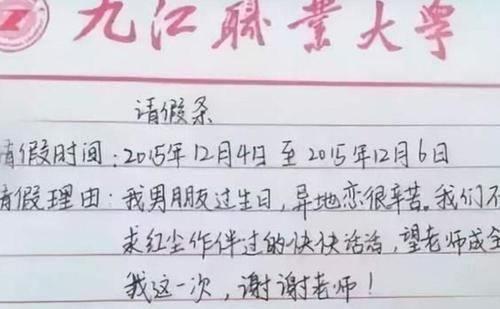 九江职业大学
请假条
请假时间:2015年12月4日至2015年12月6日
请假理由:我男朋友过生日,异地恋很辛苦。我们不
求红尘作伴过的快快活活,望老师成全
我这一次,谢谢老师!